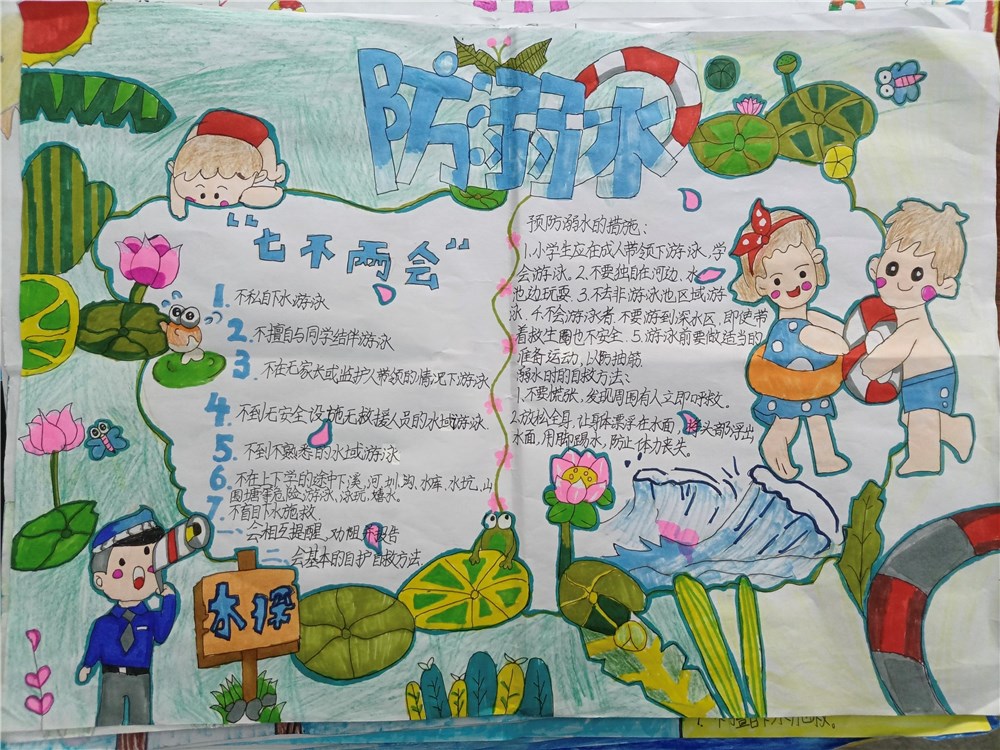 防溺水
“七不两会”
1. 不私自下水游泳
2. 不擅自与同学结伴游泳
3. 不在无家长或监护人带领的情况下游泳
4. 不到无安全设施无救援人员的水域游泳
5. 不到不熟悉的水域游泳
6. 不在上下学的途中下溪、河、圳、沟、水库、水坑、山
围塘等危险游泳、泳玩嬉水。
7. 不盲目下水施救
一、会相互提醒、劝阻并报告
二、会基本的自护自救方法.
预防溺水的措施:
1.小学生应在成人带领下游泳,学
会游泳. 2.不要独自在河边、水
池边玩耍. 3.不去非游泳池区域游
泳. 4.不会游泳者,不要游到深水区,即使带
着救生圈也不安全. 5.游泳前要做适当的
准备运动,以防抽筋.
溺水时的自救方法:
1.不要慌张,发现周围有人立即呼救.
2.放松全身,让身体漂浮在水面,将头部浮出
水面,用脚踢水,防止体力丧失。
水深